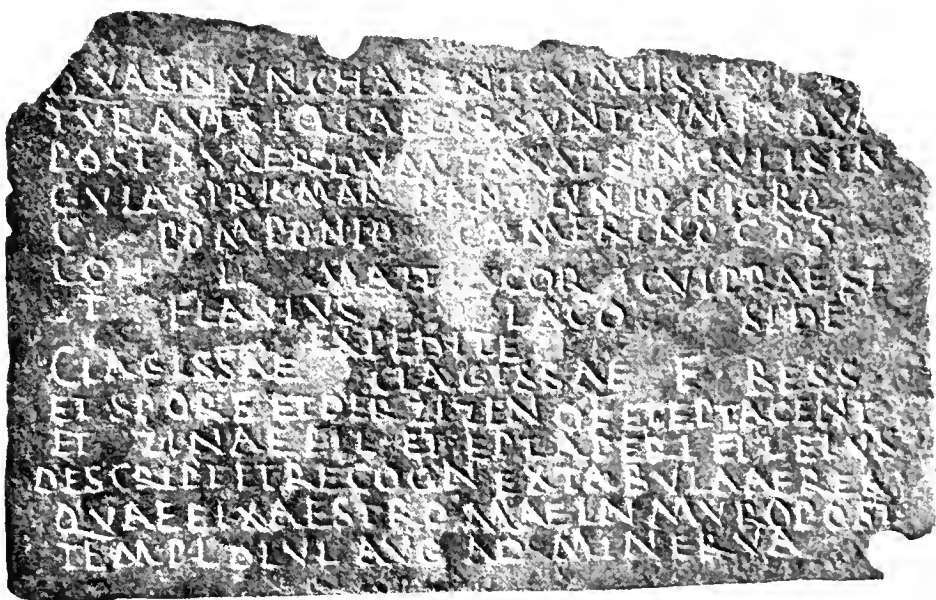 QVAS NVNC HABENT CVM IIS CIVIT
IVRA CAELIB SVNT CVM IIS QVA
POST DVMTAXAT SINGVLI SIN
GVLAS PR K MAR KANO IVNIO NIGRO
C POMPONIO CAMERINO COS
COH II MATTIACOR CVI PRAEST
T FLAVIVS LACO SEDE
EX PEDITE
CLAGISSAE CLAGISSAE F BESS
ET SPORE ET DERZIZEN ET EPTACENT
ET ZINAE FIL ET EPTAPERI
DESCRIPT ET RECOGN EX TABVLA AEREA
QVAE FIXA EST ROMAE IN MVRO POST
TEMPL DIVI AVG AD MINERVA